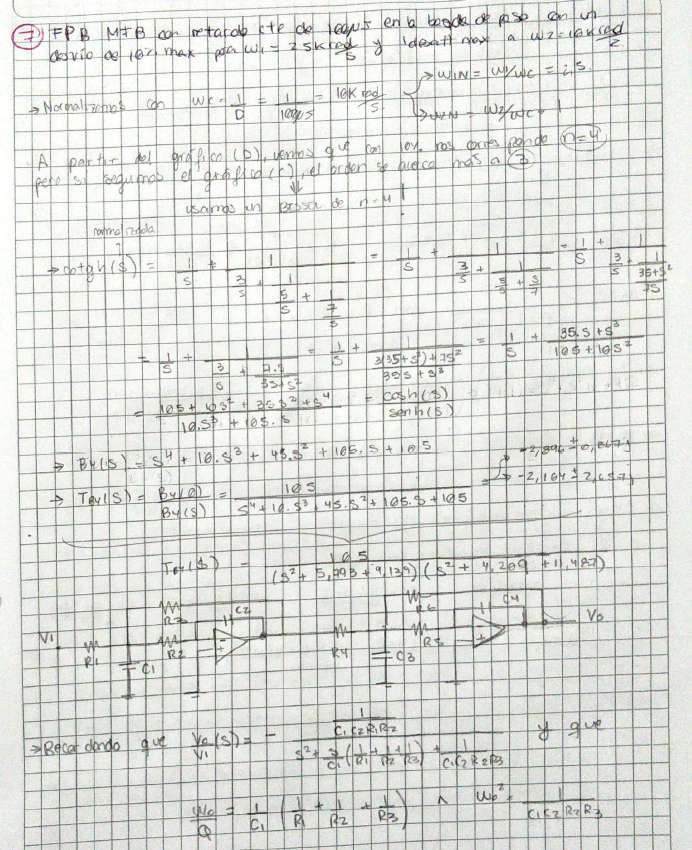 7) FPB MFB con retardo cte de 100μs en la banda de paso con un
desvío de 10% max para w1 = 2.5K rad/s y 1dB att max a w2 = 10K rad/s
→ Normalizamos con wc = 1/D = 1/100μs = 10K rad/s → W1N = W1/WC =
→ W2N = W2/WC = 1
A partir del gráfico (D), vemos que con nos corresponde n=4
pero si seguimos el gráfico (C), el orden se acerca más a 3
usamos un Bessel de n=4!
normalizada
→ cotgh(s) = 1/s + 1/(3/s + 1/(5/s + 1/(7/s))) = 1/s + 1/(3/s + 1/(5/s + s/7)) = 1/s + 1/(3/s + 1/((35+s²)/7s))
= 1/s + 1/(3/s + 7.s/(35+s²)) = 1/s + 1/((3(35+s²)+7s²)/(35s+s³)) = 1/s + (35.s+s³)/(105+10s²)
= (105+10s²+35s²+s⁴)/(10.s³+105.s) = cosh(s)/senh(s)
→ B4(s) = s⁴ + 10.s³ + 45.s² + 105.s + 105
→ TB4(s) = B4(0)/B4(s) = 105/(s⁴+10.s³+45.s²+105.s+105) → -2,896 ± 0,867j
→ -2,104 ± 2,657j
TB4(s) = 105/((s²+5,793+9,139)(s²+4,209+11,487))
R3 C2 R6 C4
V1 R1 R2 C1 R4 R5 C3 Vo
→ Recordando que Vo/V1(s) = - (1/(C1C2R1R2))/(s²+s/C1(1/R1+1/R2+1/R3)+1/(C1C2R2R3)) y que
wo/Q = 1/C1 (1/R1 + 1/R2 + 1/R3) ∧ wo² = 1/(C1C2R2R3)